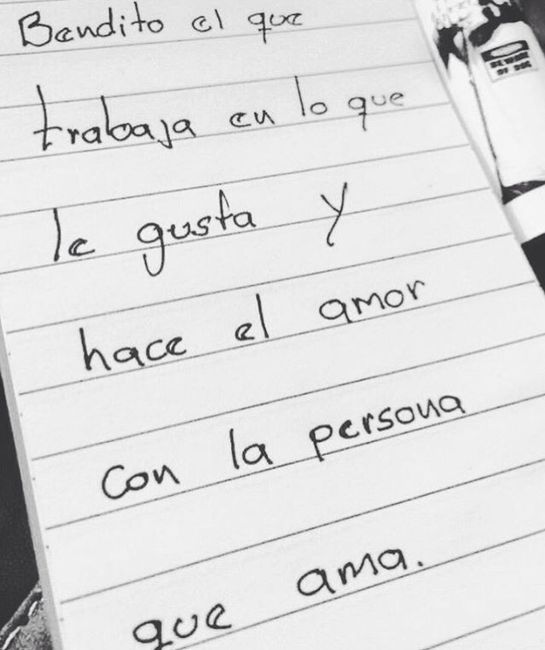 Bendito el que
trabaja en lo que
le gusta y
hace el amor
con la persona
que ama.
BEWARE
OF DOG